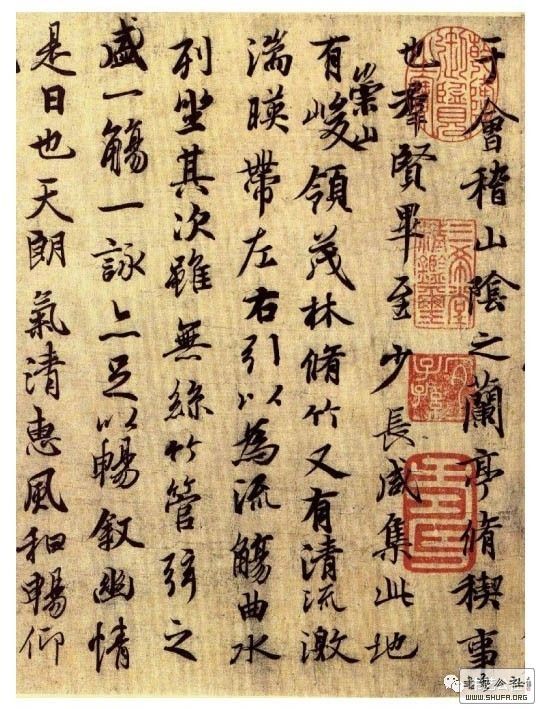 于會稽山陰之蘭亭脩稧事
也羣賢畢至少長咸集此地
有崇山峻領茂林脩竹又有清流激
湍暎帶左右引以為流觴曲水
列坐其次雖無絲竹管弦之
盛一觴一詠亦足以暢叙幽情
是日也天朗氣清惠風和暢仰
三希堂精鑑璽
宜子孫
WWW.SHUFA.ORG